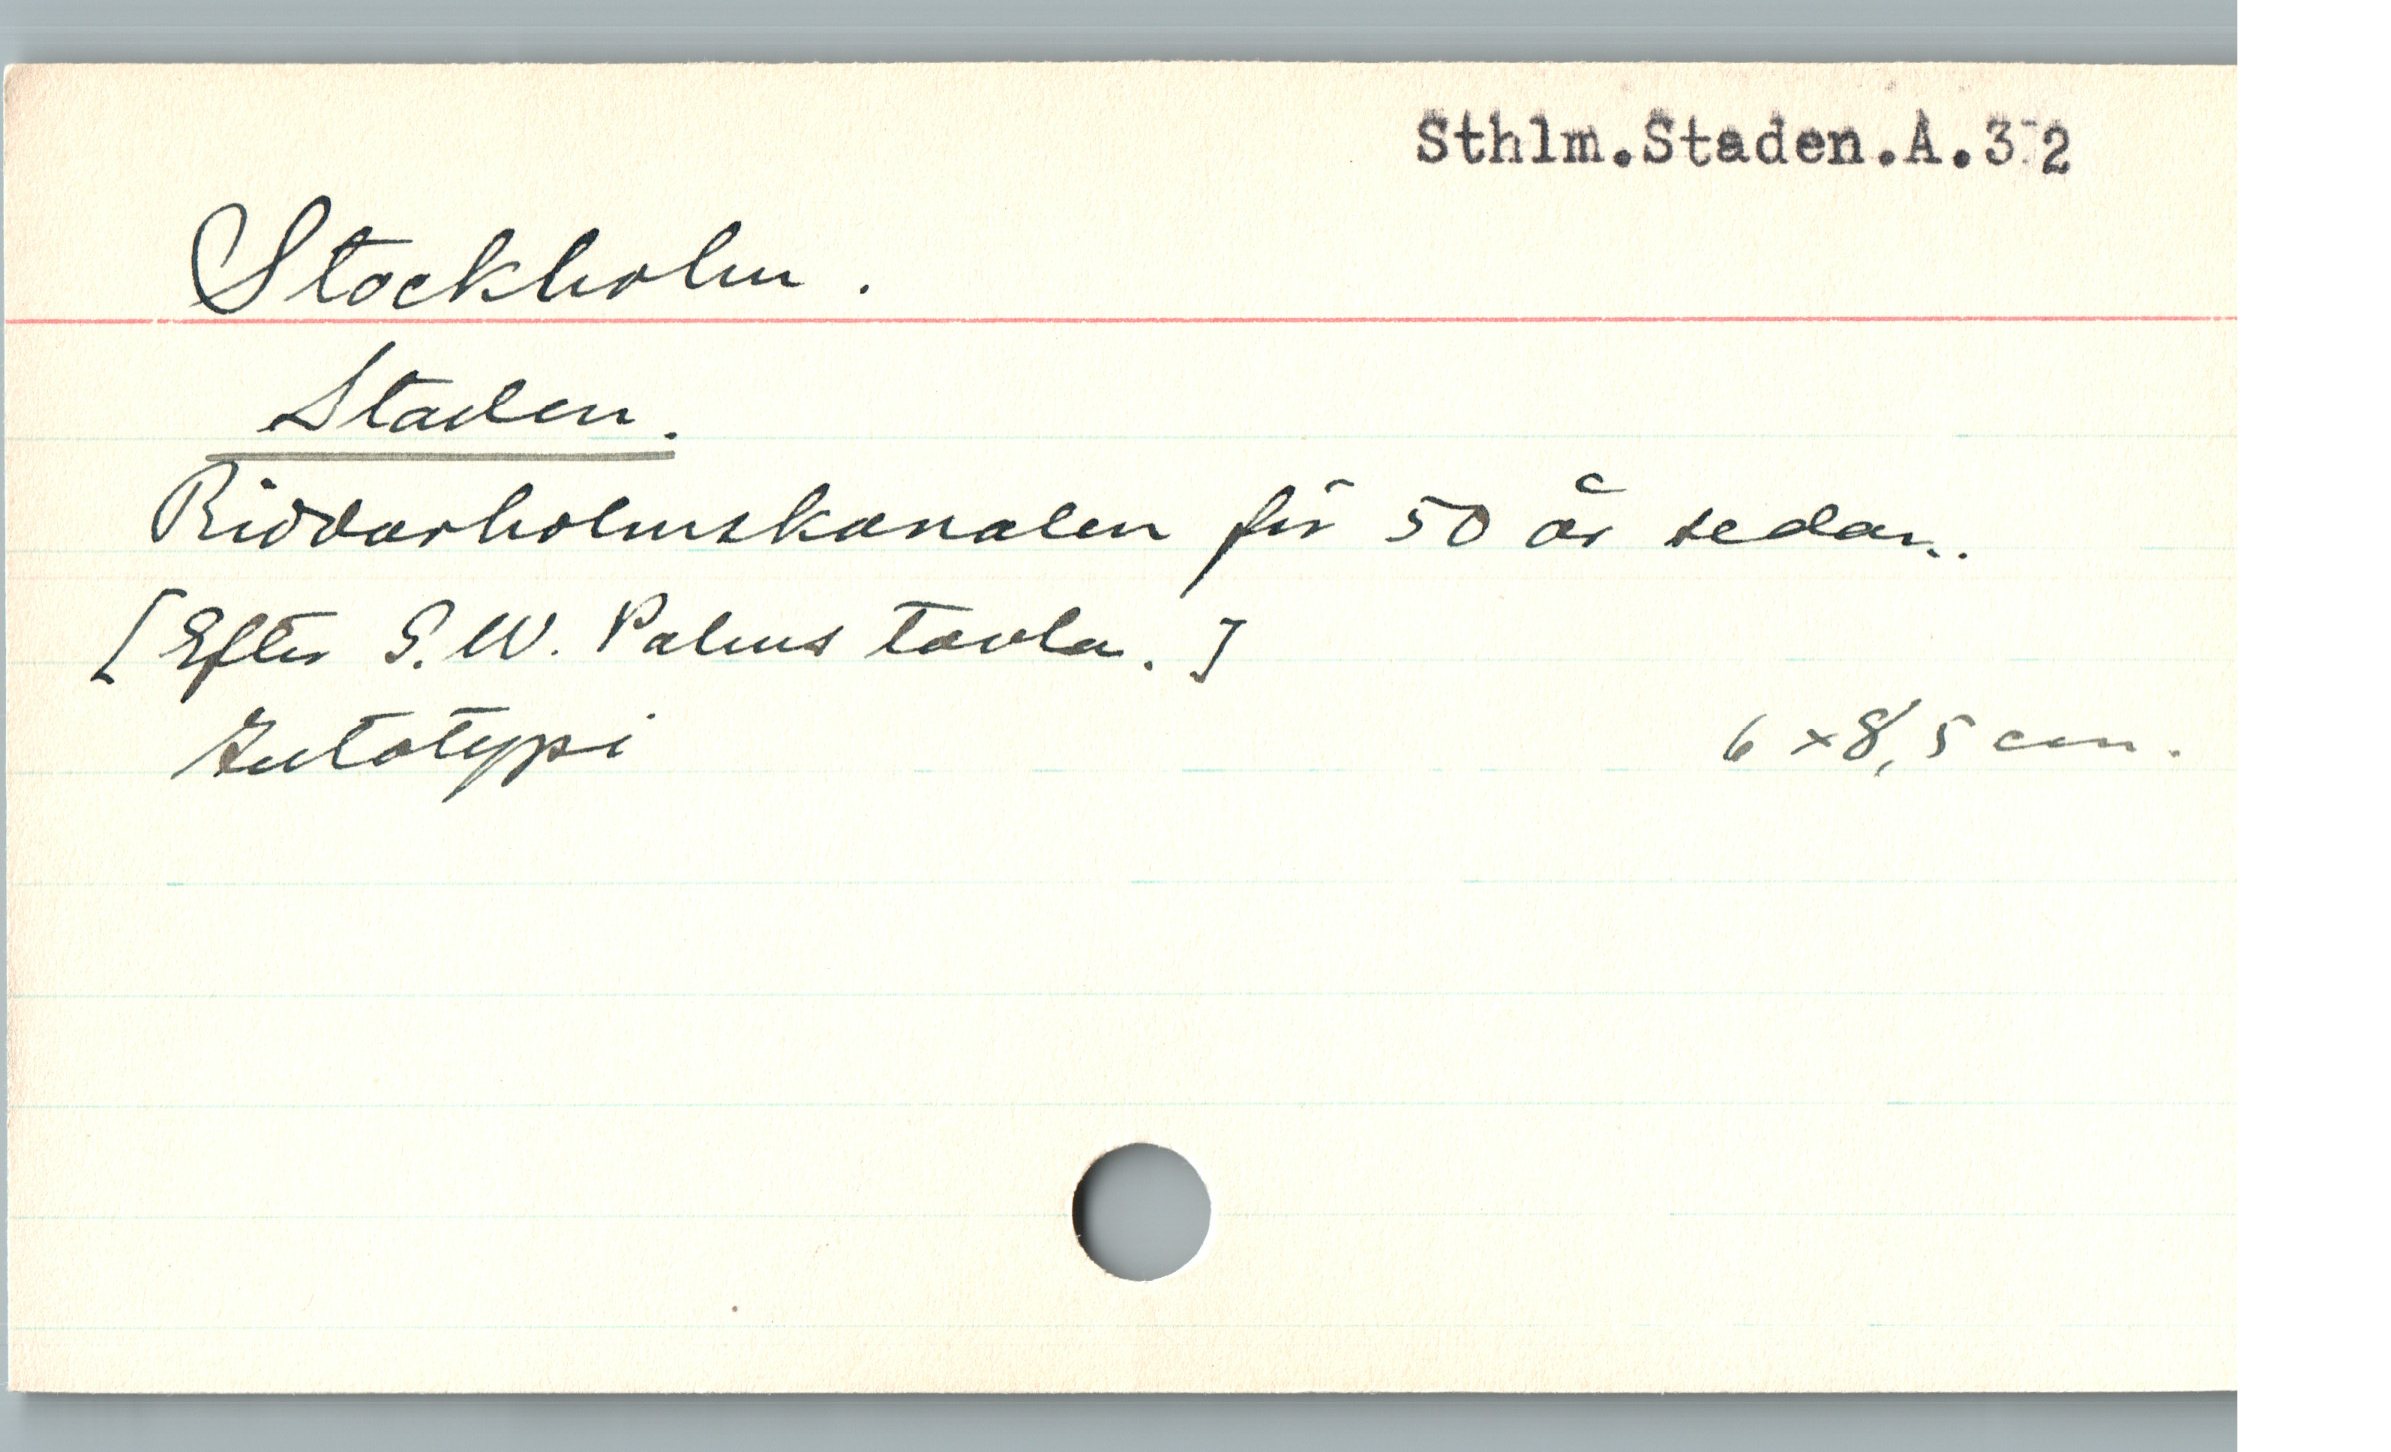 Sthlm.Staden.A.3 2
Stockholm.
Staden.
Riddarholmskanalen för 50 år sedan.
[Efter G. W. Palms tavla.]
Autotypi 6 x 8,5 cm.